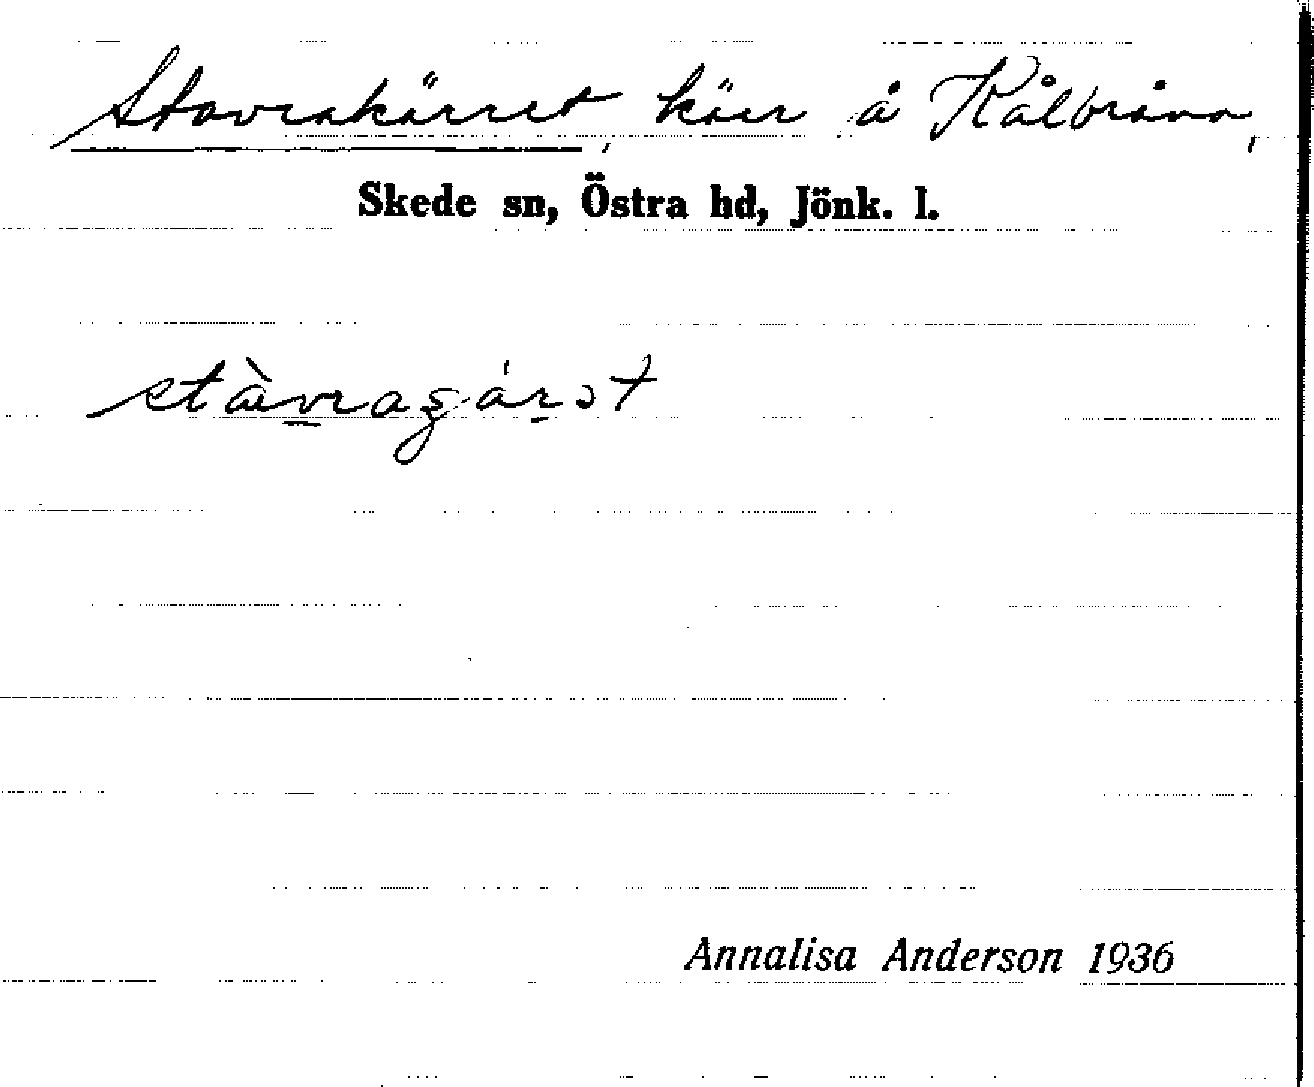 Stavrakärret, kärr å Kålbråna,
Skede sn, Östra hd, Jönk. l.
Annalisa Anderson 1936